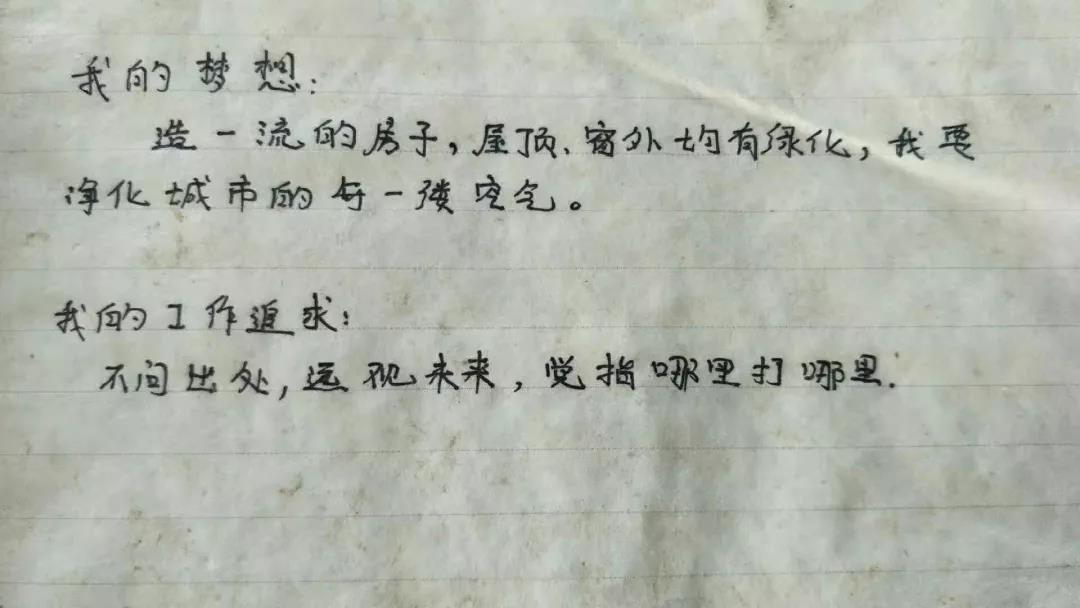 我的梦想：
造一流的房子，屋顶、窗外均有绿化，我要
净化城市的每一缕空气。
我的工作追求：
不问出处，远视未来，党指哪里打哪里.